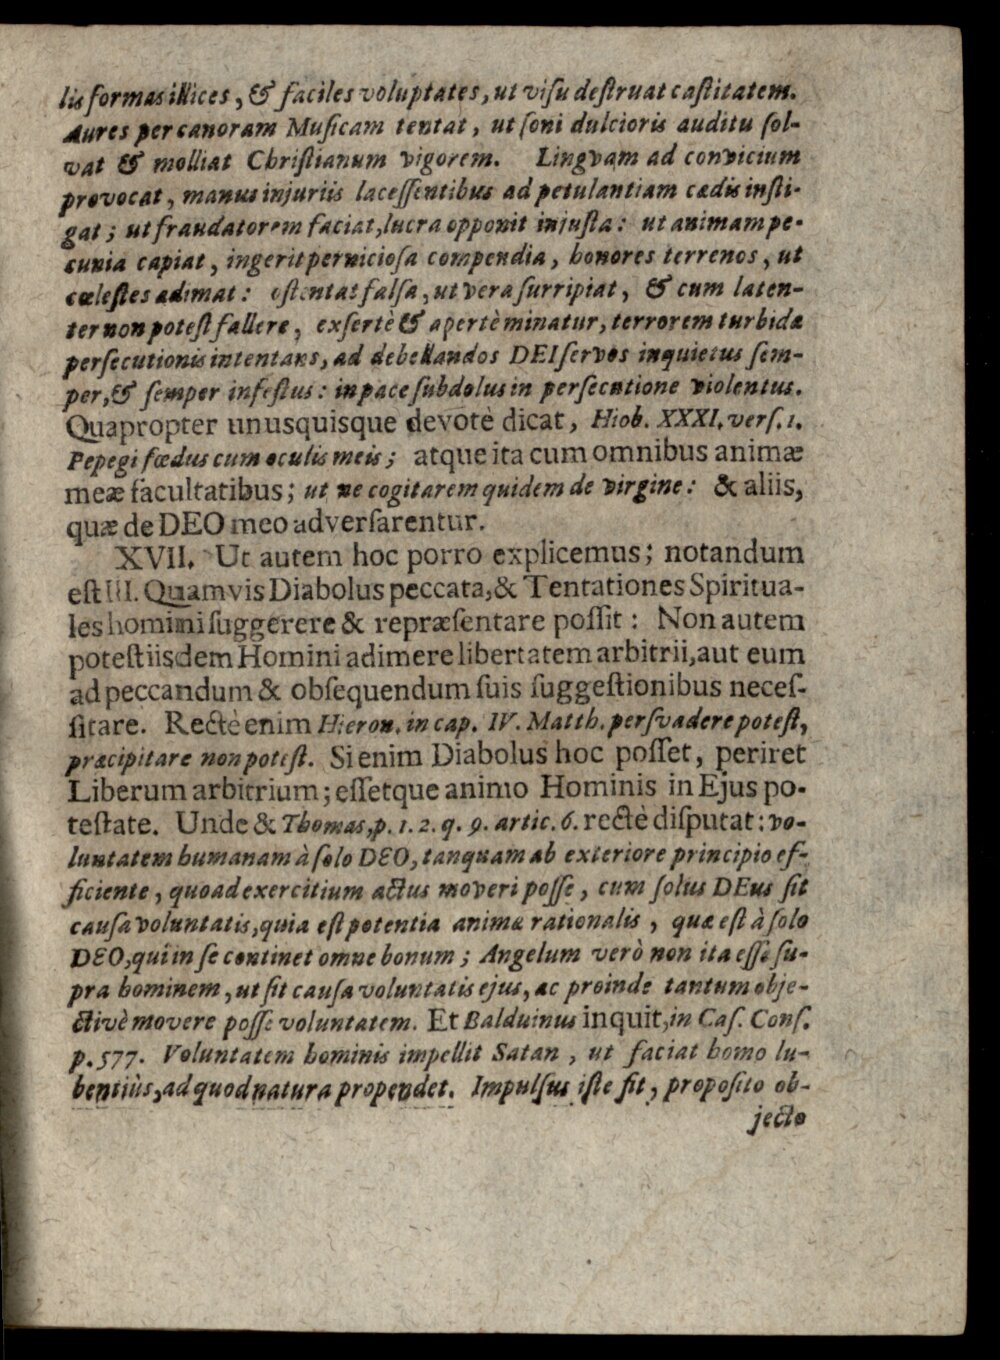 lis formas illices, & faciles voluptates, ut viſu deſtruat caſtitatem.
Aures per canoram Muſicam tentat, ut ſoni dulcioris auditu ſol-
vat & molliat Chriſtianum vigorem. Lingvam ad convicium
provocat, manus injuriis laceſſentibus ad petulantiam cædis inſti-
gat; ut fraudatorem faciat, lucra opponit injuſta: ut animam pe-
cunia capiat, ingerit pernicioſa compendia, honores terrenos, ut
cœleſtes adimat: oſtentat falſa, ut vera ſurripiat, & cum laten-
ter non poteſt fallere, exſertè & apertè minatur, terrorem turbidæ
perſecutionis intentans, ad debellandos DEI ſervos inquietus ſem-
per, & ſemper infeſtus: in pace ſubdolus in perſecutione violentus.
Quapropter unusquisque devotè dicat, Hiob. XXXI. verſ. 1.
Pepegi fœdus cum oculis meis; atque ita cum omnibus animæ
meæ facultatibus; ut ne cogitarem quidem de virgine: & aliis,
quæ de DEO meo adverſarentur.
XVII. Ut autem hoc porro explicemus; notandum
eſt III. Quamvis Diabolus peccata, & Tentationes Spiritua-
les homini ſuggerere & repræſentare poſſit: Non autem
poteſt iisdem Homini adimere libertatem arbitrii, aut eum
ad peccandum & obſequendum ſuis ſuggeſtionibus neceſ-
ſitare. Rectè enim Hieron. in cap. IV. Matth. perſvadere poteſt,
præcipitare non poteſt. Si enim Diabolus hoc poſſet, periret
Liberum arbitrium; eſſetque animo Hominis in Ejus po-
teſtate. Unde & Thomas, p. 1. 2. q. 9. artic. 6. rectè diſputat: vo-
luntatem humanam à ſolo DEO, tanquam ab exteriore principio ef-
ficiente, quoad exercitium actus moveri poſſe, cum ſolus DEus ſit
cauſa voluntatis, quia eſt potentia animæ rationalis, quæ eſt à ſolo
DEO, qui in ſe continet omne bonum; Angelum verò non ita eſſe ſu-
pra hominem, ut ſit cauſa voluntatis ejus, ac proinde tantum obje-
ctivè movere poſſe voluntatem. Et Balduinus inquit, in Caſ. Conſ.
p. 577. Voluntatem hominis impellit Satan, ut faciat homo lu-
bentiùs, ad quod natura propendet. Impulſus iſte fit, propoſito ob-
jecto